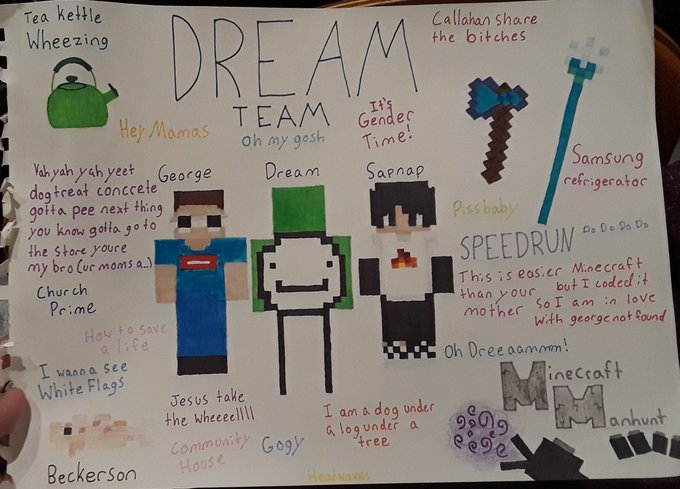 Tea kettle
Wheezing
DREAM
TEAM
Callahan share
the bitches
Hey Mamas
Oh my gosh
It's
Gender
Time!
Samsung
refrigerator
Yah yah yah yeet
dogtreat concrete
gotta pee next thing
you know gotta go to
the store youre
my bro (ur moms a..)
George
Dream
Sapnap
Pissbaby
SPEEDRUN
Do Do Do Do
This is easier
than your
mother
Minecraft
but I coded it
so I am in love
with georgenotfound
Church
Prime
How to save
a life
I wanna see
White Flags
Oh Dreeaammm!
Minecraft
Manhunt
Jesus take
the wheeeellll
I am a dog under
a log under a
tree
Community
House
Gogy
Beckerson
Heatwaves